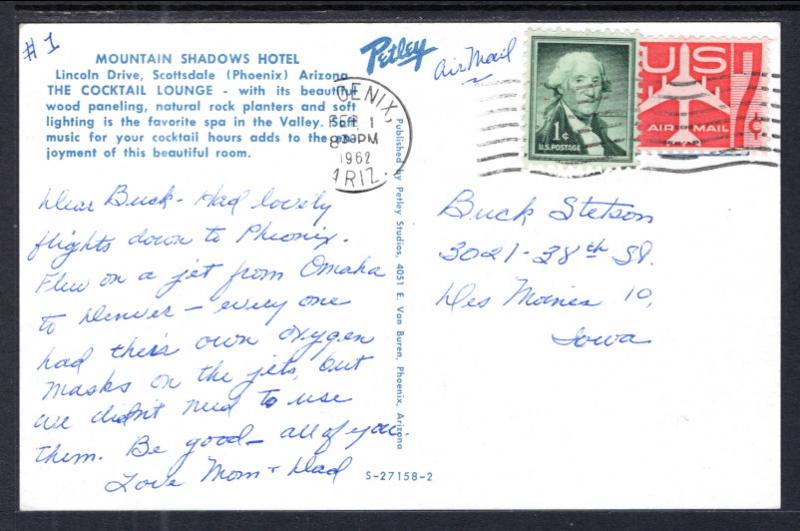 #1
MOUNTAIN SHADOWS HOTEL
Lincoln Drive, Scottsdale (Phoenix) Arizona
THE COCKTAIL LOUNGE - with its beautiful
wood paneling, natural rock planters and soft
lighting is the favorite spa in the Valley. Soft
music for your cocktail hours adds to the en-
joyment of this beautiful room.
Petley
Air Mail
OENIX,
FEB 1
830PM
1962
ARIZ.
1¢
U.S. POSTAGE
US
AIR MAIL
Dear Buck - Had lovely
flights down to Pheonix.
Flew on a jet from Omaha
to Denver - every one
had their own oxygen
masks on the jets, but
we didn't need to use
them. Be good - all of you.
Love Mom + Dad
Published by Petley Studios, 4051 E. Van Buren, Phoenix, Arizona
S-27158-2
Buck Stetson
3021-38th St.
Des Moines 10,
Iowa